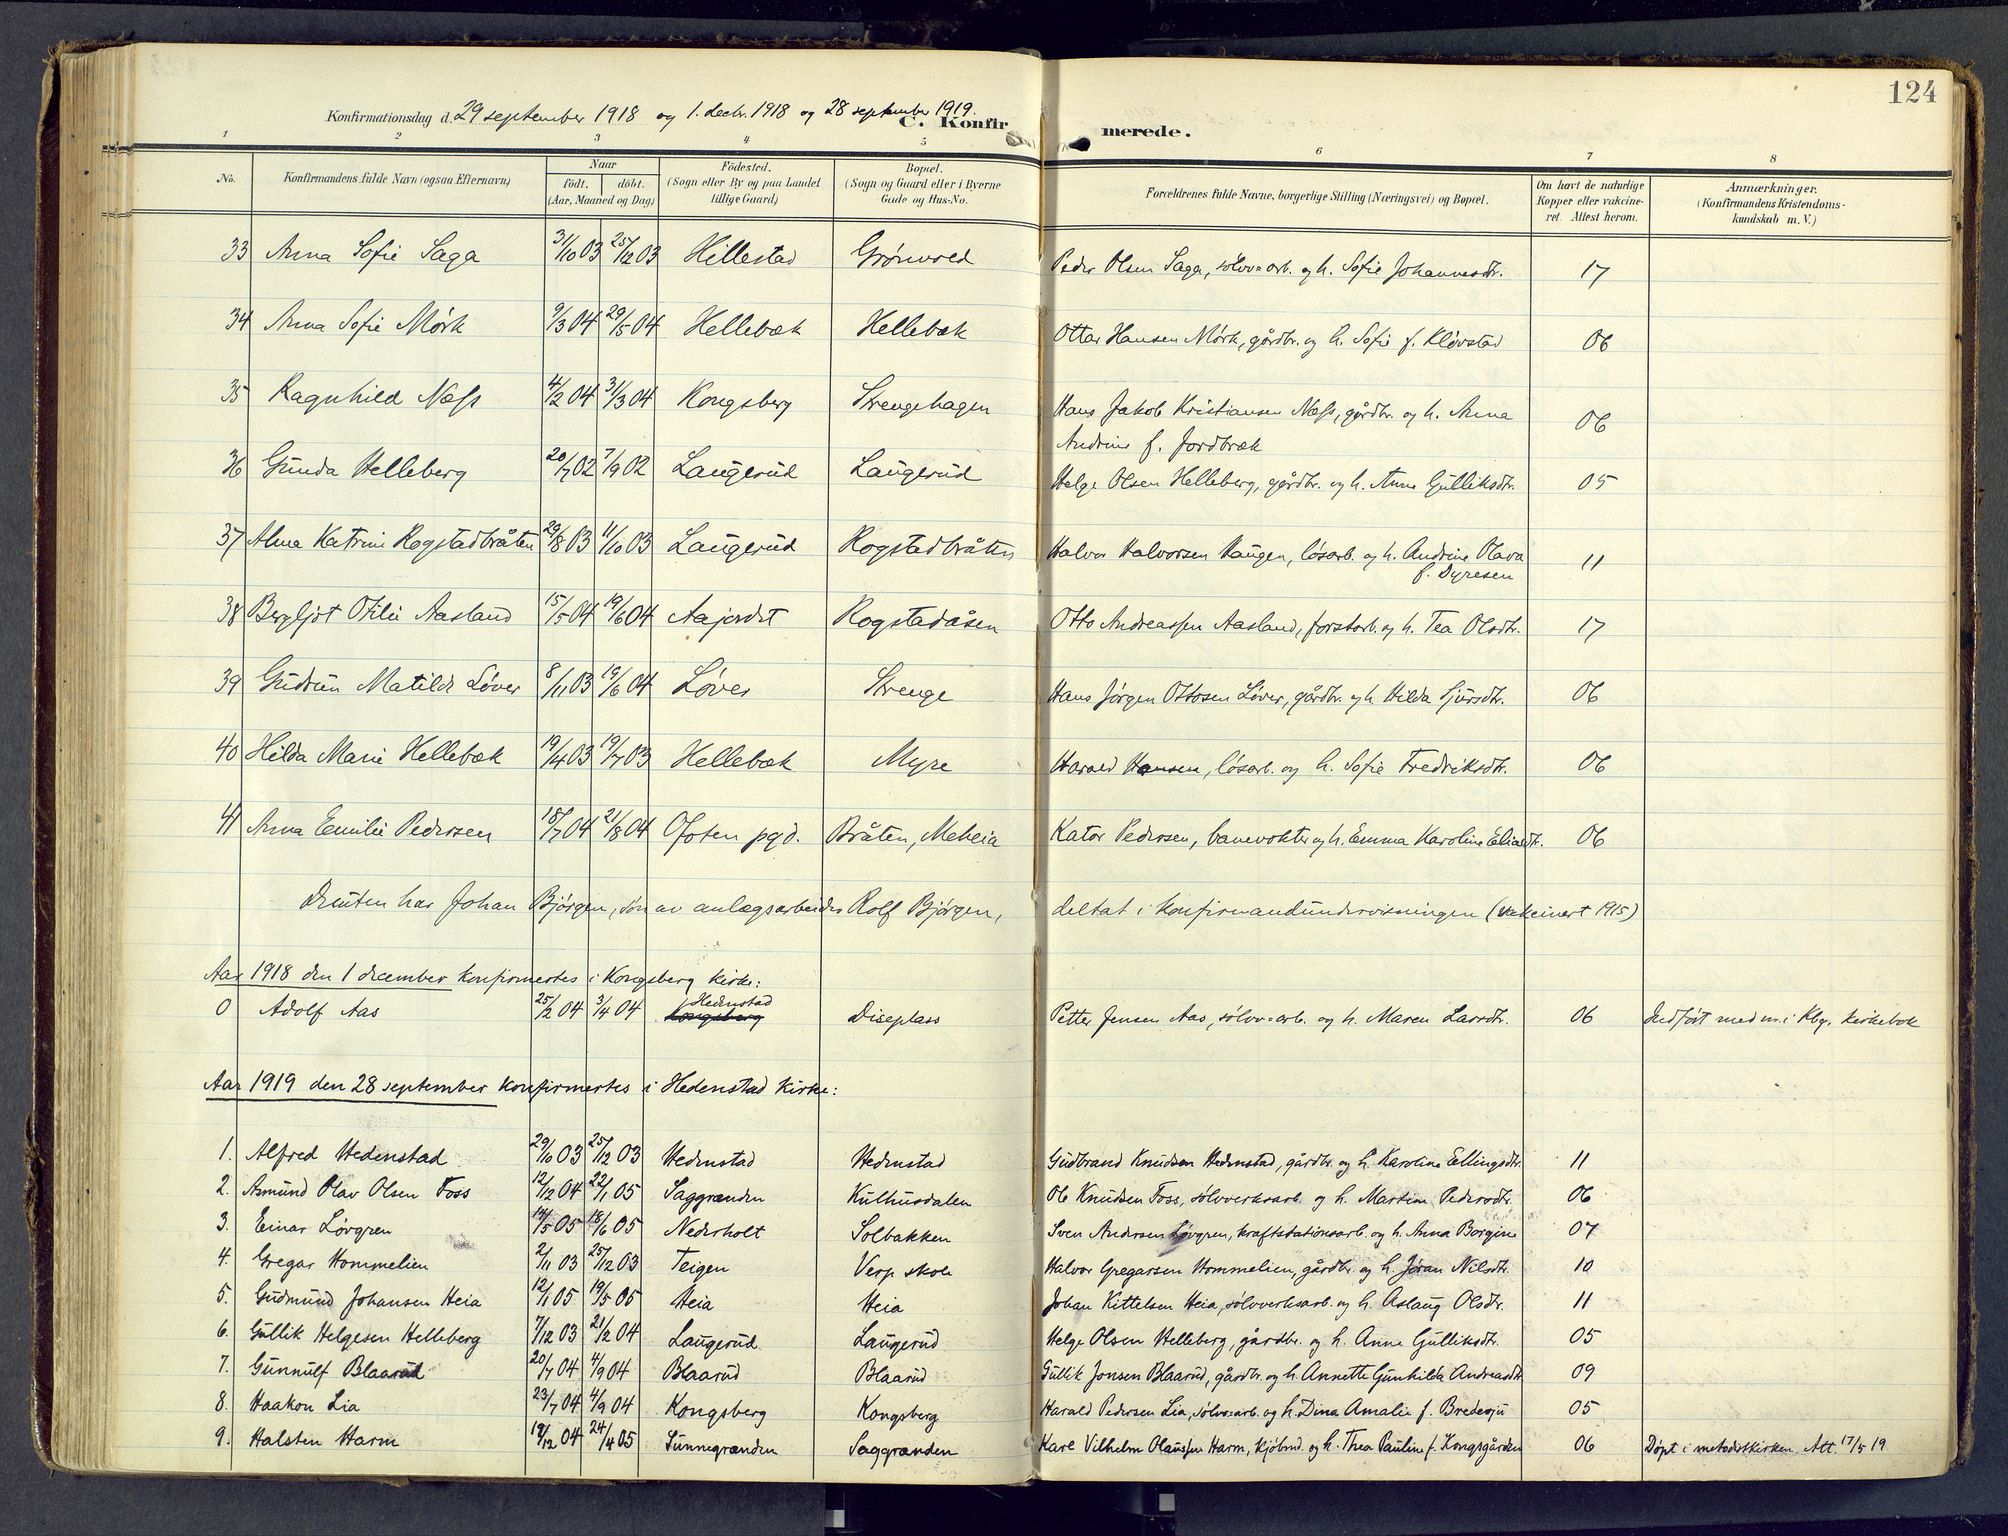 124
Konfirmationsdag d. 29 september 1918 og 1. decbr. 1918 og 28 september 1919.
C. Konfirmerede.
1 2 3 4 5 6 7 8
No. Konfirmandens fulde Navn (ogsaa Efternavn) Naar födt. döbt. (Aar, Maaned og Dag) Födested. (Sogn eller By og paa Landet tillige Gaard) Bopæl. (Sogn og Gaard eller i Byerne Gade og Hus-No. Forældrenes fulde Navne, borgerlige Stilling (Næringsvei) og Bopæl. Om havt de naturlige Kopper eller vakcineret. Attest herom. Anmærkninger. (Konfirmandens Kristendomskundskab m. V.)
33 Anna Sofie Saga 31/10 03 25/12 03 Hillestad Grønvold Peder Olsen Saga, sølvv=arb. og h. Sofie Johannesdtr. 17
34 Anna Sofie Mørk 9/3 04 29/5 04 Hellebæk Hellebæk Ottar Hansen Mørk, gårdbr. og h. Sofie f. Kløvstad 06
35 Ragnhild Næss 4/2 04 31/3 04 Kongsberg Strengehagen Hans Jakob Kristiansen Næss, gårdbr. og h. Anna
Andrine f. Jordbræk 06
36 Gunda Helleberg 20/7 02 7/9 02 Laugerud Laugerud Helge Olsen Helleberg, gårdbr. og h. Anne Gulliksdtr. 05
37 Alma Katrine Rogstadbråten 29/8 03 11/10 03 Laugerud Rogstadbråten Halvor Halvorsen Haugen, løsarb. og h. Andrine Olava
f. Dyresen 11
38 Bergljot Otilie Aasland 15/5 04 19/6 04 Aajordet Rogstadåsen Otto Andreassen Aasland, forstarb. og h. Tea Olsdtr. 17
39 Gudrun Matilde Løver 8/11 03 19/6 04 Løver Strenge Hans Jørgen Ottosen Løver, gårdbr. og h. Hilda Sjursdtr. 06
40 Hilda Marie Hellebæk 19/4 03 19/7 03 Hellebæk Myre Harald Hansen, løsarb. og h. Sofie Fredriksdtr. 06
41 Anna Emilie Pedersen 18/7 04 21/8 04 Ofoten pgd. Bråten, Meheia Kator Pedersen, banevokter og h. Emma Karoline Eliasdtr. 06
Desuten har Johan Bjørgen, søn av anlægsarbeider Rolf Bjørgen, deltat i konfirmandundervisningen (vakcinert 1915)
Aar 1918 den 1 december konfirmertes i Kongsberg kirke:
0 Adolf Aas 25/2 04 3/4 04 Kongsberg Hedenstad Diseplass Petter Jensen Aas, sølvv=arb. og h. Maren Larsdtr. 06 Indført med nr. i Kbg. kirkebok
Aar 1919 den 28 september konfirmertes i Hedenstad kirke:
1. Alfred Hedenstad 29/10 03 25/12 03 Hedenstad Hedenstad Gudbrand Knudsen Hedenstad, gårdbr. og h. Karoline Ellingsdtr. 11
2. Asmund Olav Olsen Foss 12/12 04 22/1 05 Saggrenden Kulhusdalen Ole Knudsen Foss, sølvverksarb. og h. Martine Pedersdtr. 06
3. Einar Løvgren 14/5 05 18/6 05 Nederholt Solbakken Sven Andersen Løvgren, kraftstationsarb. og h. Anna Borgine 07
4. Gregar Hommelien 2/11 03 25/12 03 Teigen Verp skole Halvor Gregarsen Hommelien, gårdbr. og h. Jøran Nilsdtr. 10
5. Gudmund Johansen Heia 12/1 05 19/5 05 Heia Heia Johan Kittelsen Heia, sølvverksarb. og h. Aslaug Olsdtr. 11
6. Gullik Helgesen Helleberg 7/12 03 21/2 04 Laugerud Laugerud Helge Olsen Helleberg, gårdbr. og h. Anne Gulliksdtr. 05
7. Gunnulf Blaarud 20/7 04 4/9 04 Blaarud Blaarud Gullik Jonsen Blaarud, gårdbr. og h. Annette Gunhilda Andreasdtr. 09
8. Haakon Lia 23/7 04 4/9 04 Kongsberg Kongsberg Harald Pedersen Lia, sølvv=arb. og h. Dina Amalie f. Bredesju 05
9. Halsten Harm 19/12 04 24/4 05 Sunnegrenden Saggrenden Karl Vilhelm Olaussen Harm, kjøbmd. og h. Thea Pauline f. Kongsgården 06 Døpt i metodistkirken. Att. 17/5 19